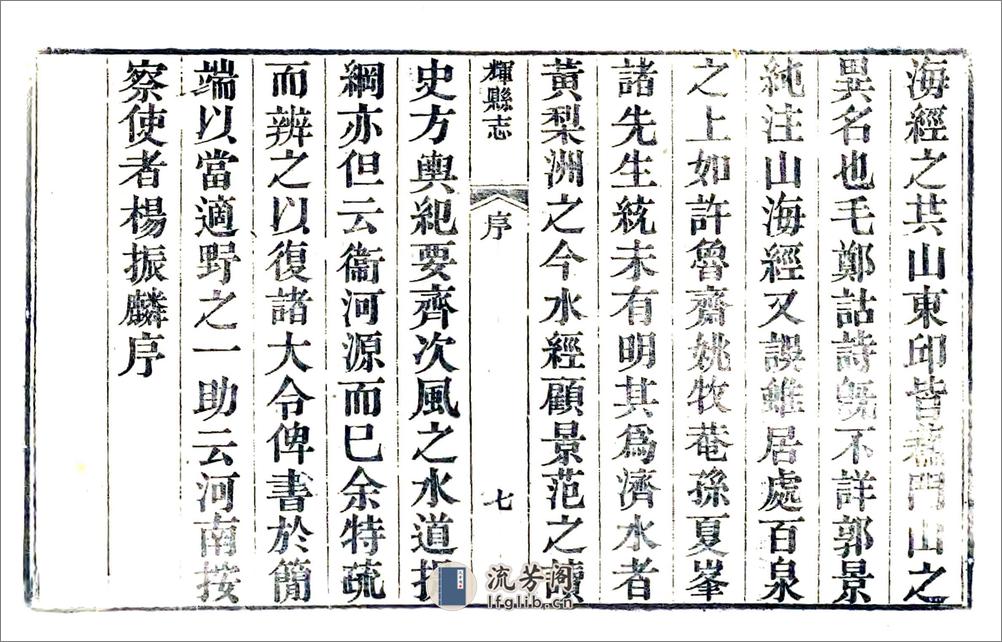 海經之共山東印皆蘇門山之
異名也毛鄭詁詩旣不詳郭景
純注山海經又誤雖居處百泉
之上如許魯齋姚牧菴孫夏峯
諸先生統未有明其爲濟水者
黃梨洲之今水經顧景范之讀
輝縣志
序
七
史方輿紀要齊次風之水道提
綱亦但云衞河源而已余特疏
而辨之以復諸大令俾書於簡
端以當適野之一助云河南按
察使者楊振麟序
流芳阁
lfglib.cn